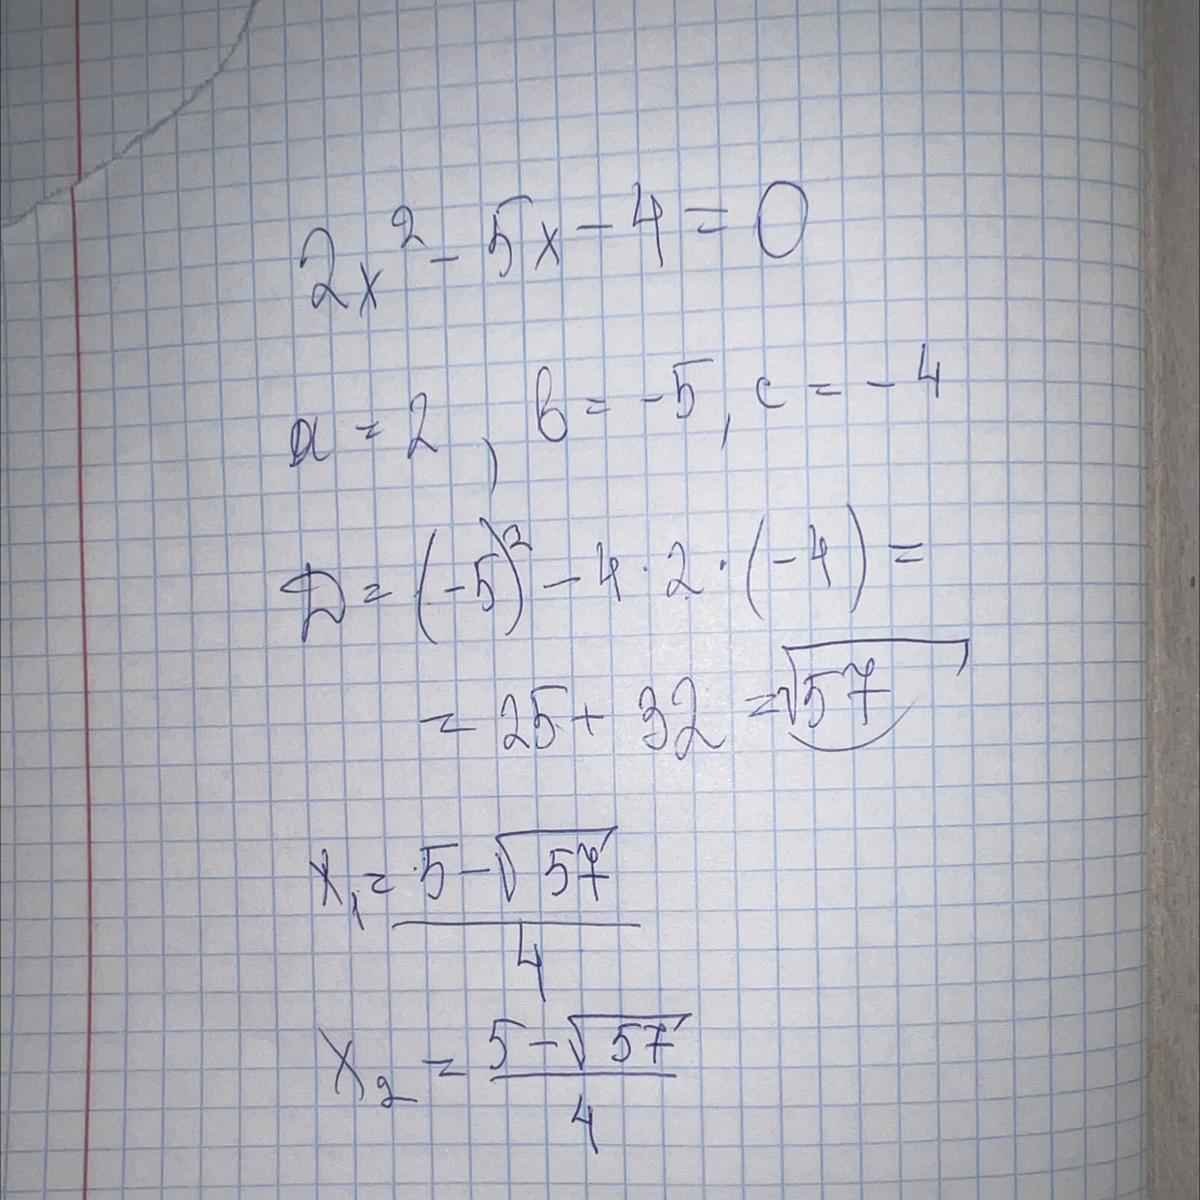 2x² - 5x - 4 = 0
a = 2, b = -5, c = -4
D = (-5)² - 4 · 2 · (-4) =
= 25 + 32 = √57
x₁ = (5 - √57) / 4
x₂ = (5 - √57) / 4